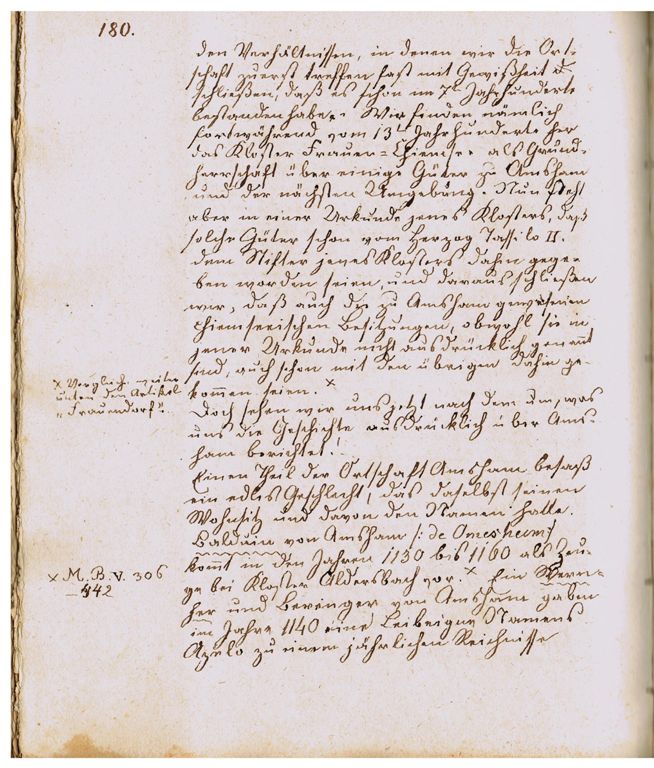 180.
den Verhältnissen, in denen wir die Ort-
schaft zuerst treffen fast mit Gewißheit
schließen, daß es schon im 7t Jahrhunderte
bestanden habe. Wir finden nämlich
fortwährend vom 13t Jahrhunderte her
das Kloster Frauen-Chiemsee als Grund-
herrschaft über einige Güter zu Amsham
und der nächsten Umgebung. Nun steht
aber in einer Urkunde jenes Klosters, daß
solche Güter schon vom Herzog Tassilo II.
dem Stifter jenes Klosters dahin gege-
ben worden seien, und daraus schließen
wir, daß auch die zu Amsham gewesenen
chiemseeischen Besitzungen, obwohl sie in
jener Urkunde nicht ausdrücklich genannt
sind, auch schon mit den übrigen dahin ge-
kommen seien. x
x Vergleiche weiter
unten den Artikel
"Frauendorf".
Doch sehen wir uns jetzt nach dem um, was
uns die Geschichte ausdrücklich über Ams-
ham berichtet.
Einen Theil der Ortschaft Amsham besaß
ein edles Geschlecht, das daselbst seinen
Wohnsitz und davon den Namen hatte.
Balduin von Amsham /: de Omesheim :/
kommt in den Jahren 1130 bis 1160 als Zeu-
ge bei Kloster Aldersbach vor. x Ein Wern-
x M. B. V. 306
342
her und Berenger von Amsham gaben
im Jahre 1140 eine Leibeigne Namens
Azulo zu einem jährlichen Reichnisse